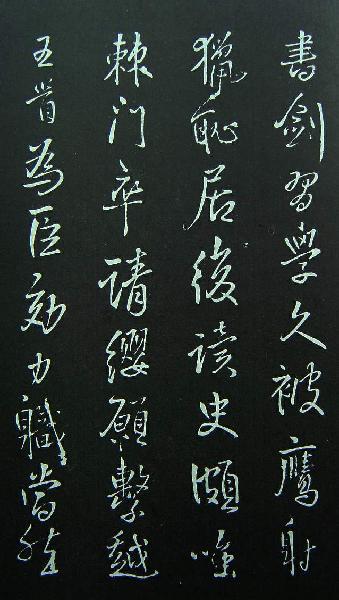 書劍習學久被鷹射
獵恥居後读史頗嗤
棘门卒請纓願繫越
王首為臣効力職當然